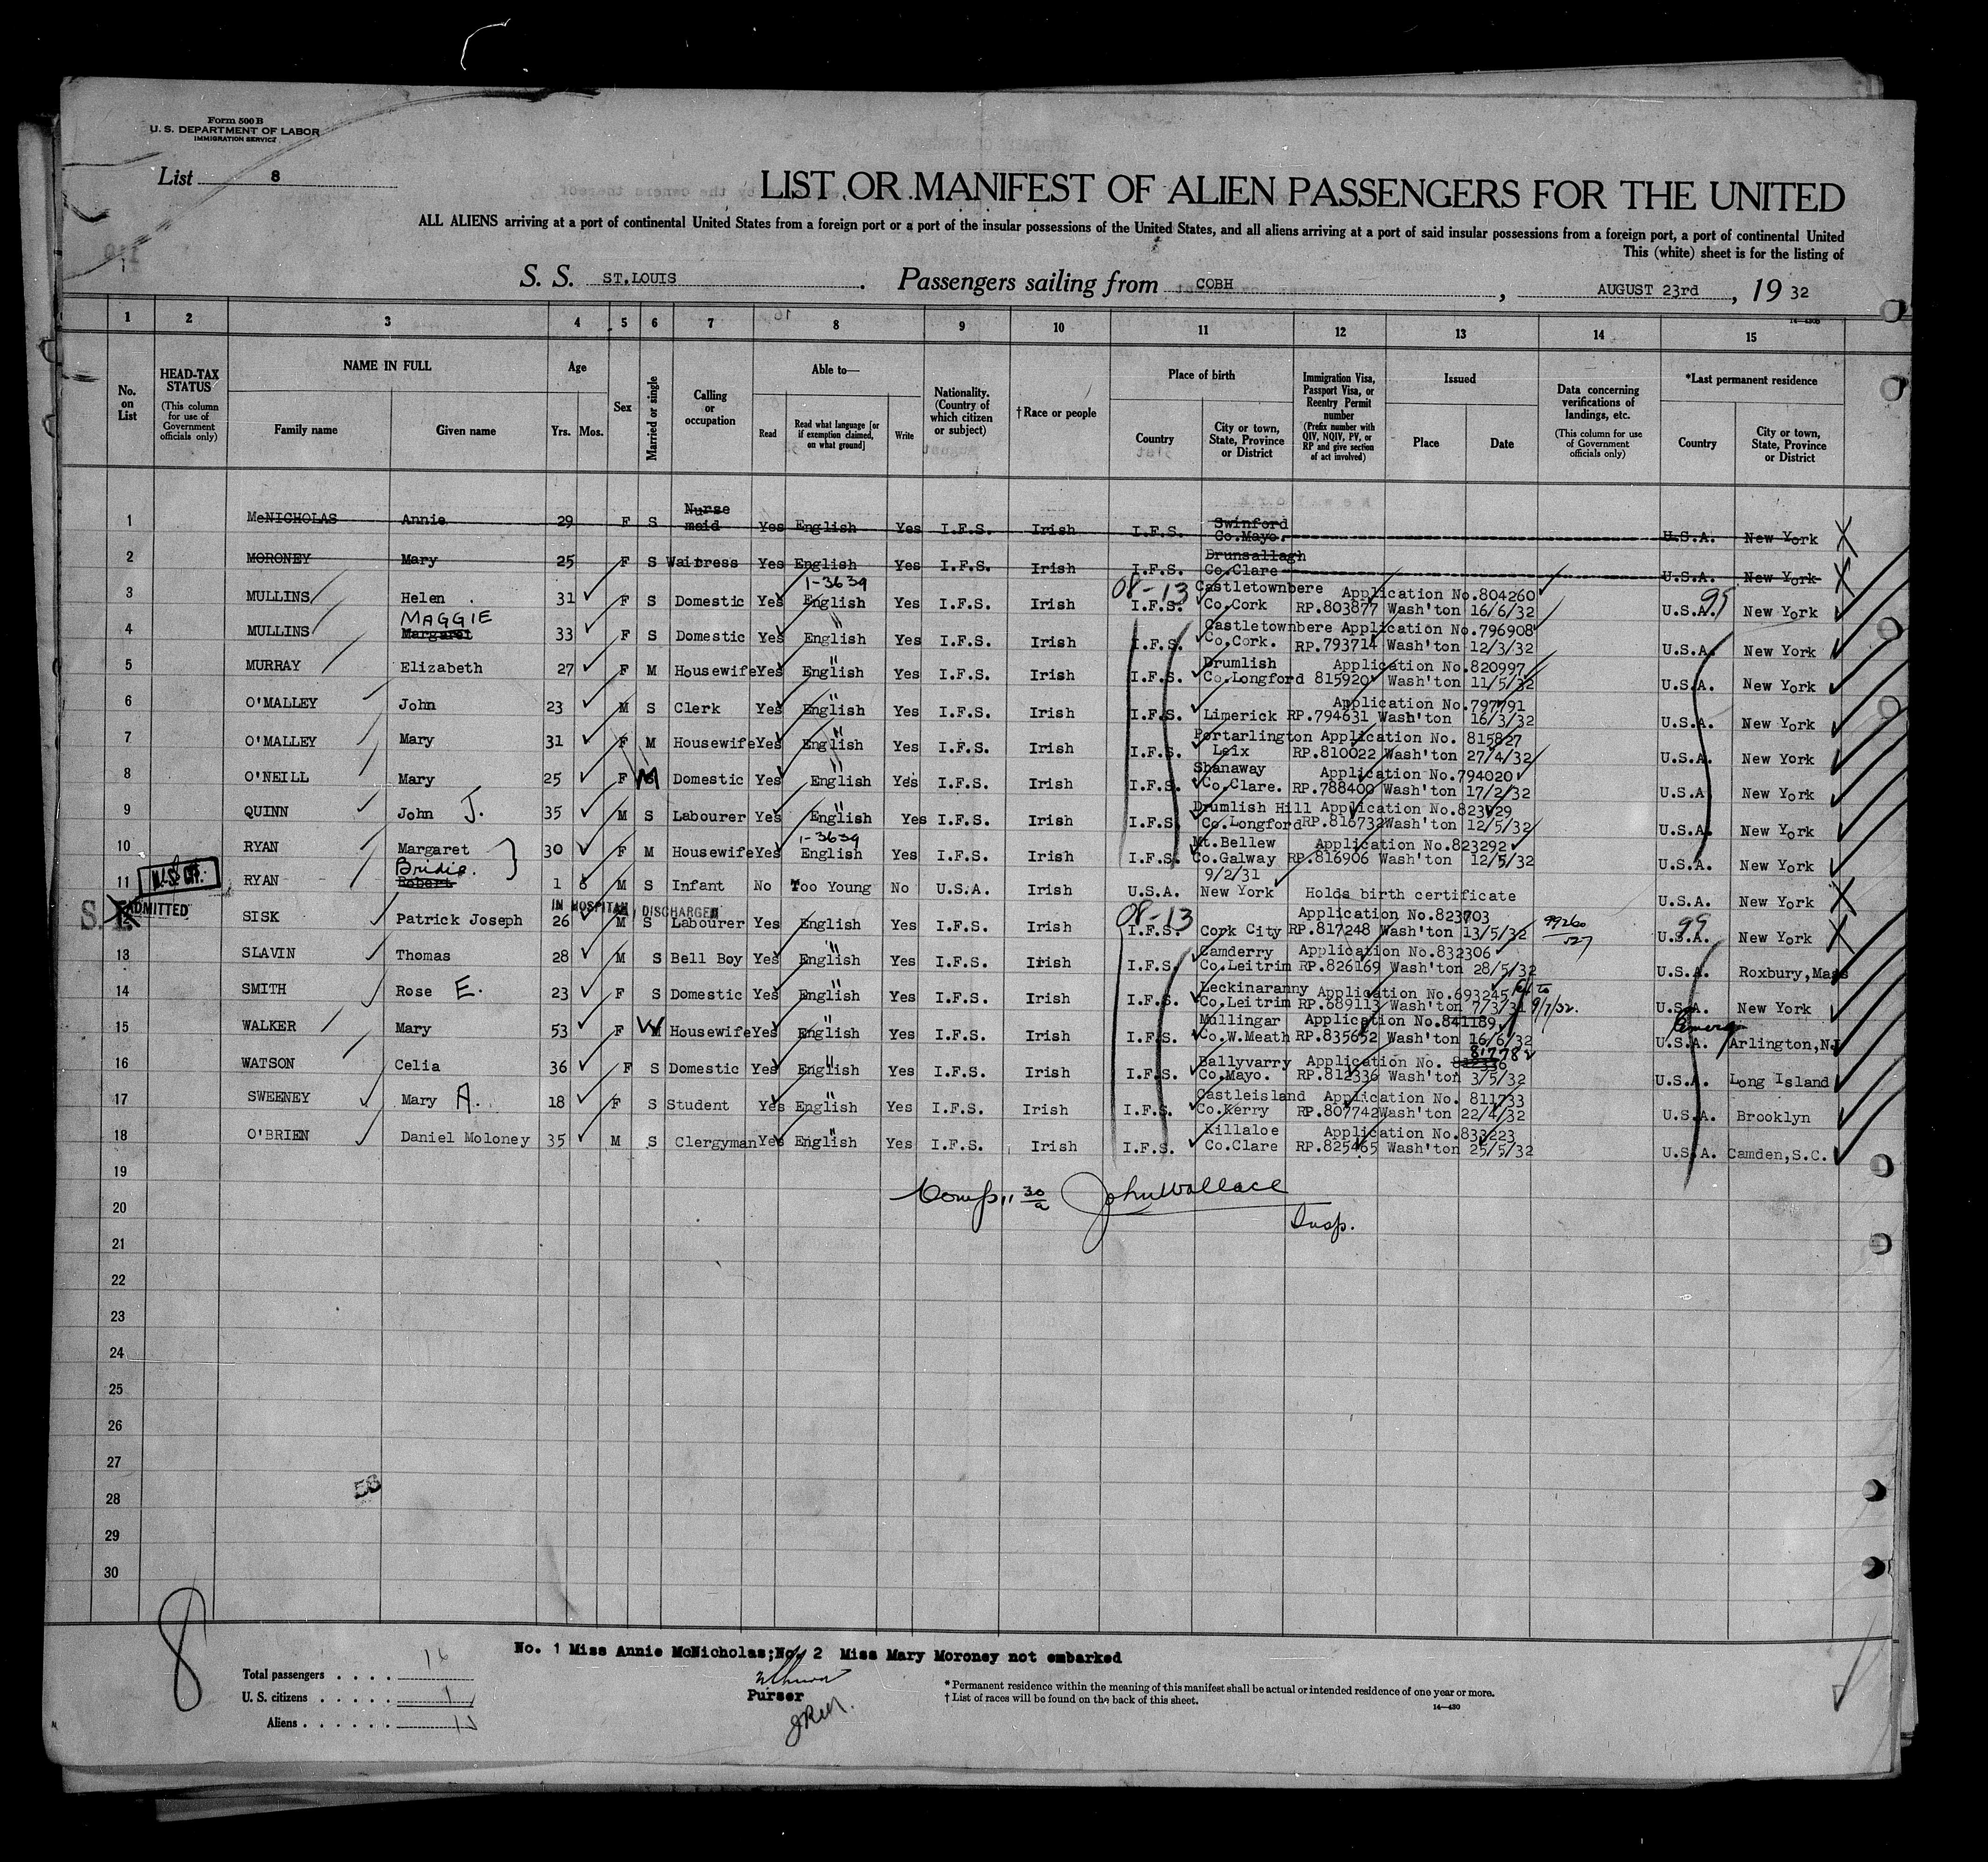 Form 500 B
U. S. DEPARTMENT OF LABOR
IMMIGRATION SERVICE
List 8
LIST OR MANIFEST OF ALIEN PASSENGERS FOR THE UNITED
ALL ALIENS arriving at a port of continental United States from a foreign port or a port of the insular possessions of the United States, and all aliens arriving at a port of said insular possessions from a foreign port, a port of continental United
This (white) sheet is for the listing of
S. S. ST.LOUIS . Passengers sailing from COBH , AUGUST 23rd , 19 32
1 2 3 4 5 6 7 8 9 10 11 12 13 14 15
No. on List
HEAD-TAX STATUS (This column for use of Government officials only)
NAME IN FULL
Family name Given name
Age
Yrs. Mos.
Sex
Married or single
Calling or occupation
Able to—
Read
Read what language [or if exemption claimed, on what ground]
Write
Nationality. (Country of which citizen or subject)
† Race or people
Place of birth
Country
City or town, State, Province or District
Immigration Visa, Passport Visa, or Reentry Permit number (Prefix number with QIV, NQIV, PV, or RP and give section of act involved)
Issued
Place Date
Data concerning verifications of landings, etc. (This column for use of Government officials only)
*Last permanent residence
Country
City or town, State, Province or District
1 McNICHOLAS Annie 29 F S Nurse maid Yes English Yes I.F.S. Irish I.F.S. Swinford Co.Mayo. U.S.A. New York
2 MORONEY Mary 25 F S Waitress Yes English Yes I.F.S. Irish I.F.S. Drunsallagh Co.Clare U.S.A. New York
1-3639 08-13 99
3 MULLINS Helen 31 F S Domestic Yes English Yes I.F.S. Irish I.F.S. Castletownbere Co.Cork Application No.804260 RP.803877 Wash'ton 16/6/32 U.S.A. New York
4 MULLINS MAGGIE Margaret 33 F S Domestic Yes English Yes I.F.S. Irish I.F.S. Castletownbere Co.Cork. Application No.796908 RP.793714 Wash'ton 12/3/32 U.S.A. New York
5 MURRAY Elizabeth 27 F M Housewife Yes English Yes I.F.S. Irish I.F.S. Drumlish Co.Longford Application No.820997 815920 Wash'ton 11/5/32 U.S.A. New York
6 O'MALLEY John 23 M S Clerk Yes English Yes I.F.S. Irish I.F.S. Limerick Application No.797791 RP.794631 Wash'ton 16/3/32 U.S.A. New York
7 O'MALLEY Mary 31 F M Housewife Yes English Yes I.F.S. Irish I.F.S. Portarlington Leix Application No. 815827 RP.810022 Wash'ton 27/4/32 U.S.A. New York
8 O'NEILL Mary 25 F M Domestic Yes English Yes I.F.S. Irish I.F.S. Shanaway Co.Clare. Application No.794020 RP.788400 Wash'ton 17/2/32 U.S.A New York
9 QUINN John J. 35 M S Labourer Yes English Yes I.F.S. Irish I.F.S. Drumlish Hill Co.Longford Application No.823729 RP.816732 Wash'ton 12/5/32 U.S.A. New York
1-3639
10 RYAN Margaret 30 F M Housewife Yes English Yes I.F.S. Irish I.F.S. Mt.Bellew Co.Galway Application No.823292 RP.816906 Wash'ton 12/5/32 U.S.A. New York
11 RYAN Bridie. Robert 1 6 M S Infant No Too Young No U.S.A. Irish U.S.A. 9/2/31 New York Holds birth certificate U.S.A. New York
S.I. ADMITTED
IN HOSPITAL DISCHARGED 08-13 99
12 SISK Patrick Joseph 26 M S Labourer Yes English Yes I.F.S. Irish I.F.S. Cork City Application No.823703 RP.817248 Wash'ton 13/5/32 99260 527 U.S.A. New York
13 SLAVIN Thomas 28 M S Bell Boy Yes English Yes I.F.S. Irish I.F.S Camderry Co.Leitrim Application No.832306 RP.826169 Wash'ton 28/5/32 U.S.A. Roxbury,Mass
14 SMITH Rose E. 23 F S Domestic Yes English Yes I.F.S. Irish I.F.S. Leckinaranny Co.Leitrim Application No.693245 RP.689113 Wash'ton 7/3/31 9/7/32. U.S.A. New York
15 WALKER Mary 53 F W Housewife Yes English Yes I.F.S. Irish I.F.S. Mullingar Co.W.Meath Application No.841189 RP.835652 Wash'ton 16/6/32 U.S.A. Arlington,NJ
16 WATSON Celia 36 F S Domestic Yes English Yes I.F.S. Irish I.F.S. Ballyvarry Co.Mayo. Application No. 812336 81778 RP.812336 Wash'ton 3/5/32 U.S.A. Long Island
17 SWEENEY Mary A. 18 F S Student Yes English Yes I.F.S. Irish I.F.S. Castleisland Co.Kerry Application No. 811733 RP.807742 Wash'ton 22/4/32 U.S.A. Brooklyn
18 O'BRIEN Daniel Moloney 35 M S Clergyman Yes English Yes I.F.S. Irish I.F.S. Killaloe Co.Clare Application No.833223 RP.825465 Wash'ton 25/5/32 U.S.A. Camden,S.C.
19
Comp. 11 30/a John Wallace
20
Insp.
21
22
23
24
25
26
27
28
29
30
8
No. 1 Miss Annie McNicholas;No. 2 Miss Mary Moroney not embarked
Total passengers . . . . 16
U. S. citizens . . . . . 1
Aliens . . . . . . 15
Purser
* Permanent residence within the meaning of this manifest shall be actual or intended residence of one year or more.
† List of races will be found on the back of this sheet.
14—430